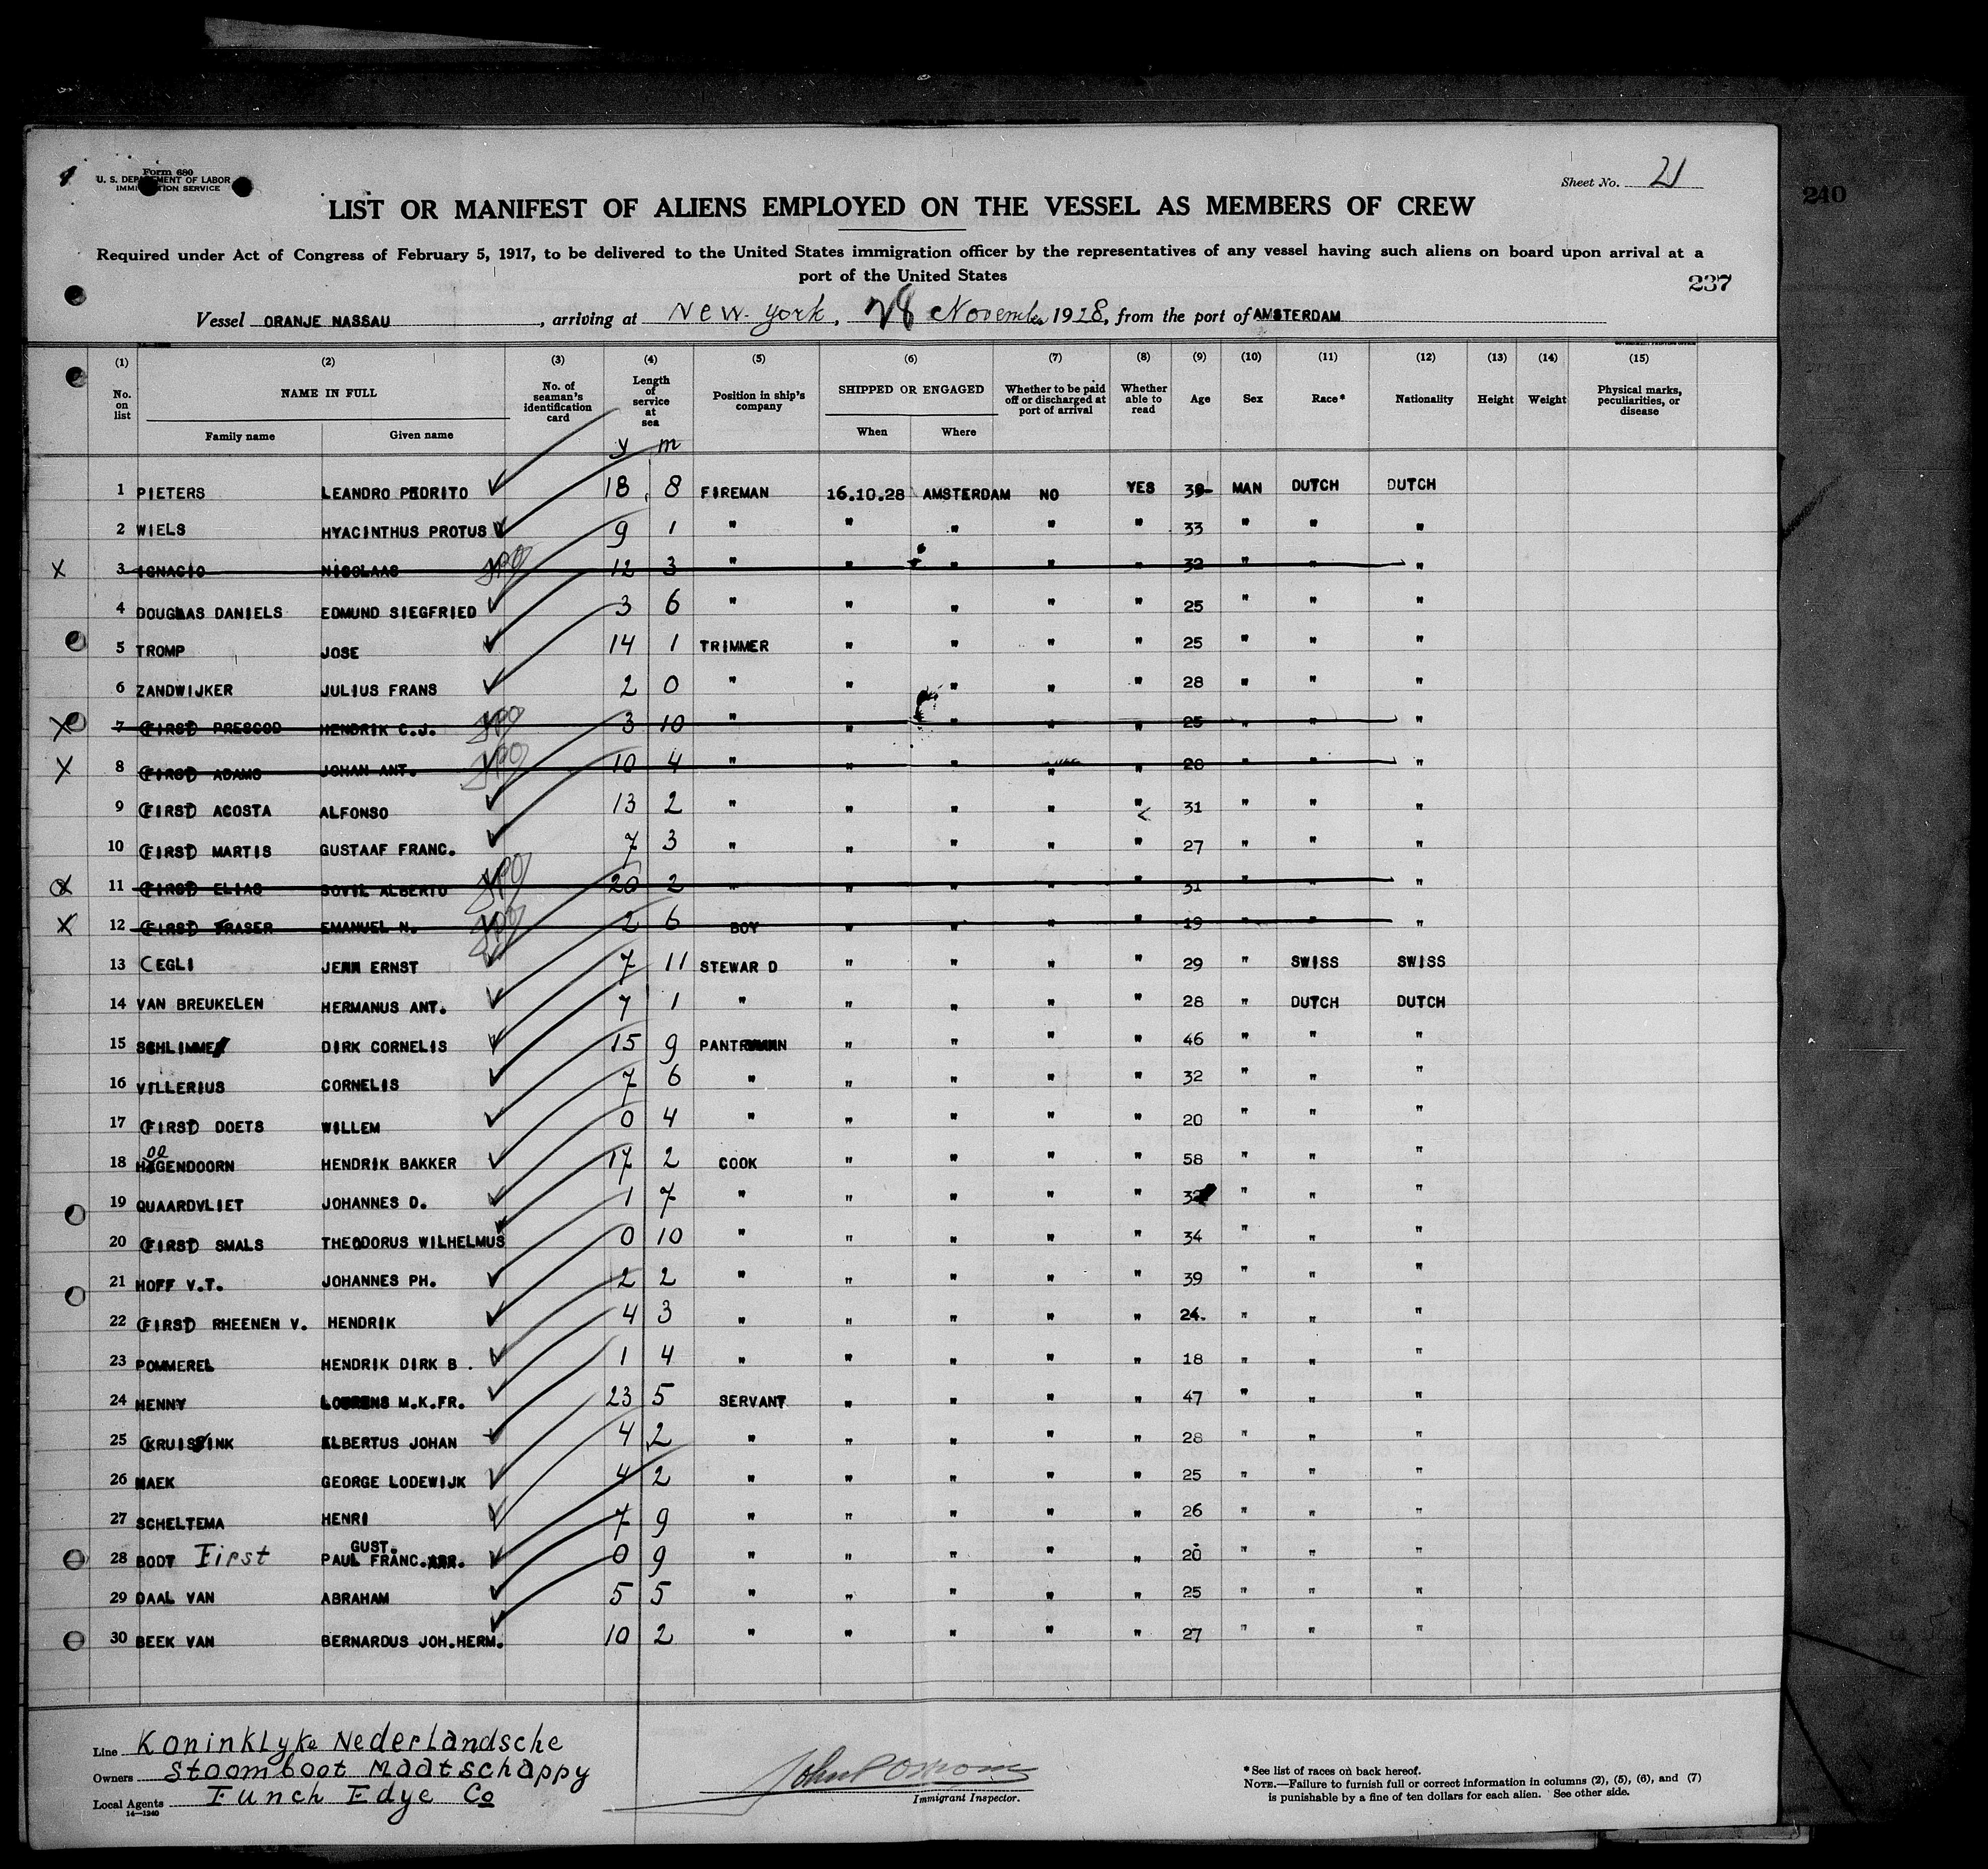 Form 680
U. S. DEPARTMENT OF LABOR
IMMIGRATION SERVICE
Sheet No. 21
240
LIST OR MANIFEST OF ALIENS EMPLOYED ON THE VESSEL AS MEMBERS OF CREW
Required under Act of Congress of February 5, 1917, to be delivered to the United States immigration officer by the representatives of any vessel having such aliens on board upon arrival at a
port of the United States
237
Vessel ORANJE NASSAU, arriving at New York, 28 November 1928, from the port of AMSTERDAM
(1) (2) (3) (4) (5) (6) (7) (8) (9) (10) (11) (12) (13) (14) (15)
No. on list NAME IN FULL No. of seaman's identification card Length of service at sea Position in ship's company SHIPPED OR ENGAGED Whether to be paid off or discharged at port of arrival Whether able to read Age Sex Race* Nationality Height Weight Physical marks, peculiarities, or disease
Family name Given name y m When Where
1 PIETERS LEANDRO PEDRITO 18 8 FIREMAN 16.10.28 AMSTERDAM NO YES 38 MAN DUTCH DUTCH
2 WIELS HYACINTHUS PROTUS 9 1 " " " " " 33 " " "
X 3 IGNACIO NICOLAAS 12 3 " " " " " 32 " " "
4 DOUGLAS DANIELS EDMUND SIEGFRIED 3 6 " " " " " 25 " " "
5 TROMP JOSE 14 1 TRIMMER " " " " 25 " " "
6 ZANDWIJKER JULIUS FRANS 2 0 " " " " " 28 " " "
X 7 (FIRST) PRESCOD HENDRIK C.J. 3 10 " " " " " 25 " " "
X 8 (FIRST) ADAMS JOHAN ANT. 10 4 " " " " " 28 " " "
9 (FIRST) ACOSTA ALFONSO 13 2 " " " " " 31 " " "
10 (FIRST) MARTIS GUSTAAF FRANC. 7 3 " " " " " 27 " " "
X 11 (FIRST) ELIAS SOVIL ALBERTO 20 2 " " " " " 31 " " "
X 12 (FIRST) FRASER EMANUEL N. 2 6 BOY " " " " 19 " " "
13 CEGLI ERNST 7 11 STEWAR D " " " " 29 " SWISS SWISS
14 VAN BREUKELEN HERMANUS ANT. 7 1 " " " " " 28 " DUTCH DUTCH
15 SCHLIMME DIRK CORNELIS 15 9 " " " " 46 " " "
16 VILLERIUS CORNELIS 7 6 " " " " " 32 " " "
17 (FIRST) DOETS WILLEM 0 4 " " " " " 20 " " "
18 HOOGENDOORN HENDRIK BAKKER 17 2 COOK " " " " 58 " " "
19 QUAARDVLIET JOHANNES D. 1 7 " " " " " 32 " " "
20 (FIRST) SMALS THEODORUS WILHELMUS 0 10 " " " " " 34 " " "
21 HOFF V.T. JOHANNES PH. 2 2 " " " " " 39 " " "
22 (FIRST) RHEENEN V. HENDRIK 4 3 " " " " " 24. " " "
23 POMMEREL HENDRIK DIRK B . 1 4 " " " " " 18 " " "
24 HENNY LOURENS M.K.FR. 23 5 SERVANT " " " " 47 " " "
25 KRUISSINK ELBERTUS JOHAN 4 2 " " " " " 28 " " "
26 MAEK GEORGE LODEWIJK 4 2 " " " " " 25 " " "
27 SCHELTEMA HENRI 7 9 " " " " " 26 " " "
28 BODT First PAUL GUST. FRANC. 0 9 " " " " " 20 " " "
29 DAAL VAN ABRAHAM 5 5 " " " " " 25 " " "
30 BEEK VAN BERNARDUS JOH.HERM. 10 2 " " " " " 27 " " "
Line Koninklyke Nederlandsche
Owners Stoomboot Maatschappy
Local Agents Funch Edye Co
14—1240
Immigrant Inspector.
* See list of races on back hereof.
NOTE.—Failure to furnish full or correct information in columns (2), (5), (6), and (7)
is punishable by a fine of ten dollars for each alien. See other side.